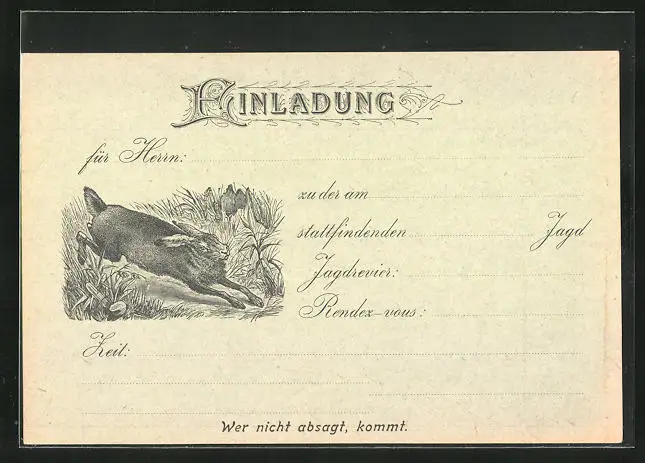 EINLADUNG
für Herrn:
zu der am
stattfindenden Jagd
Jagdrevier:
Rendez-vous:
Zeit:
Wer nicht absagt, kommt.